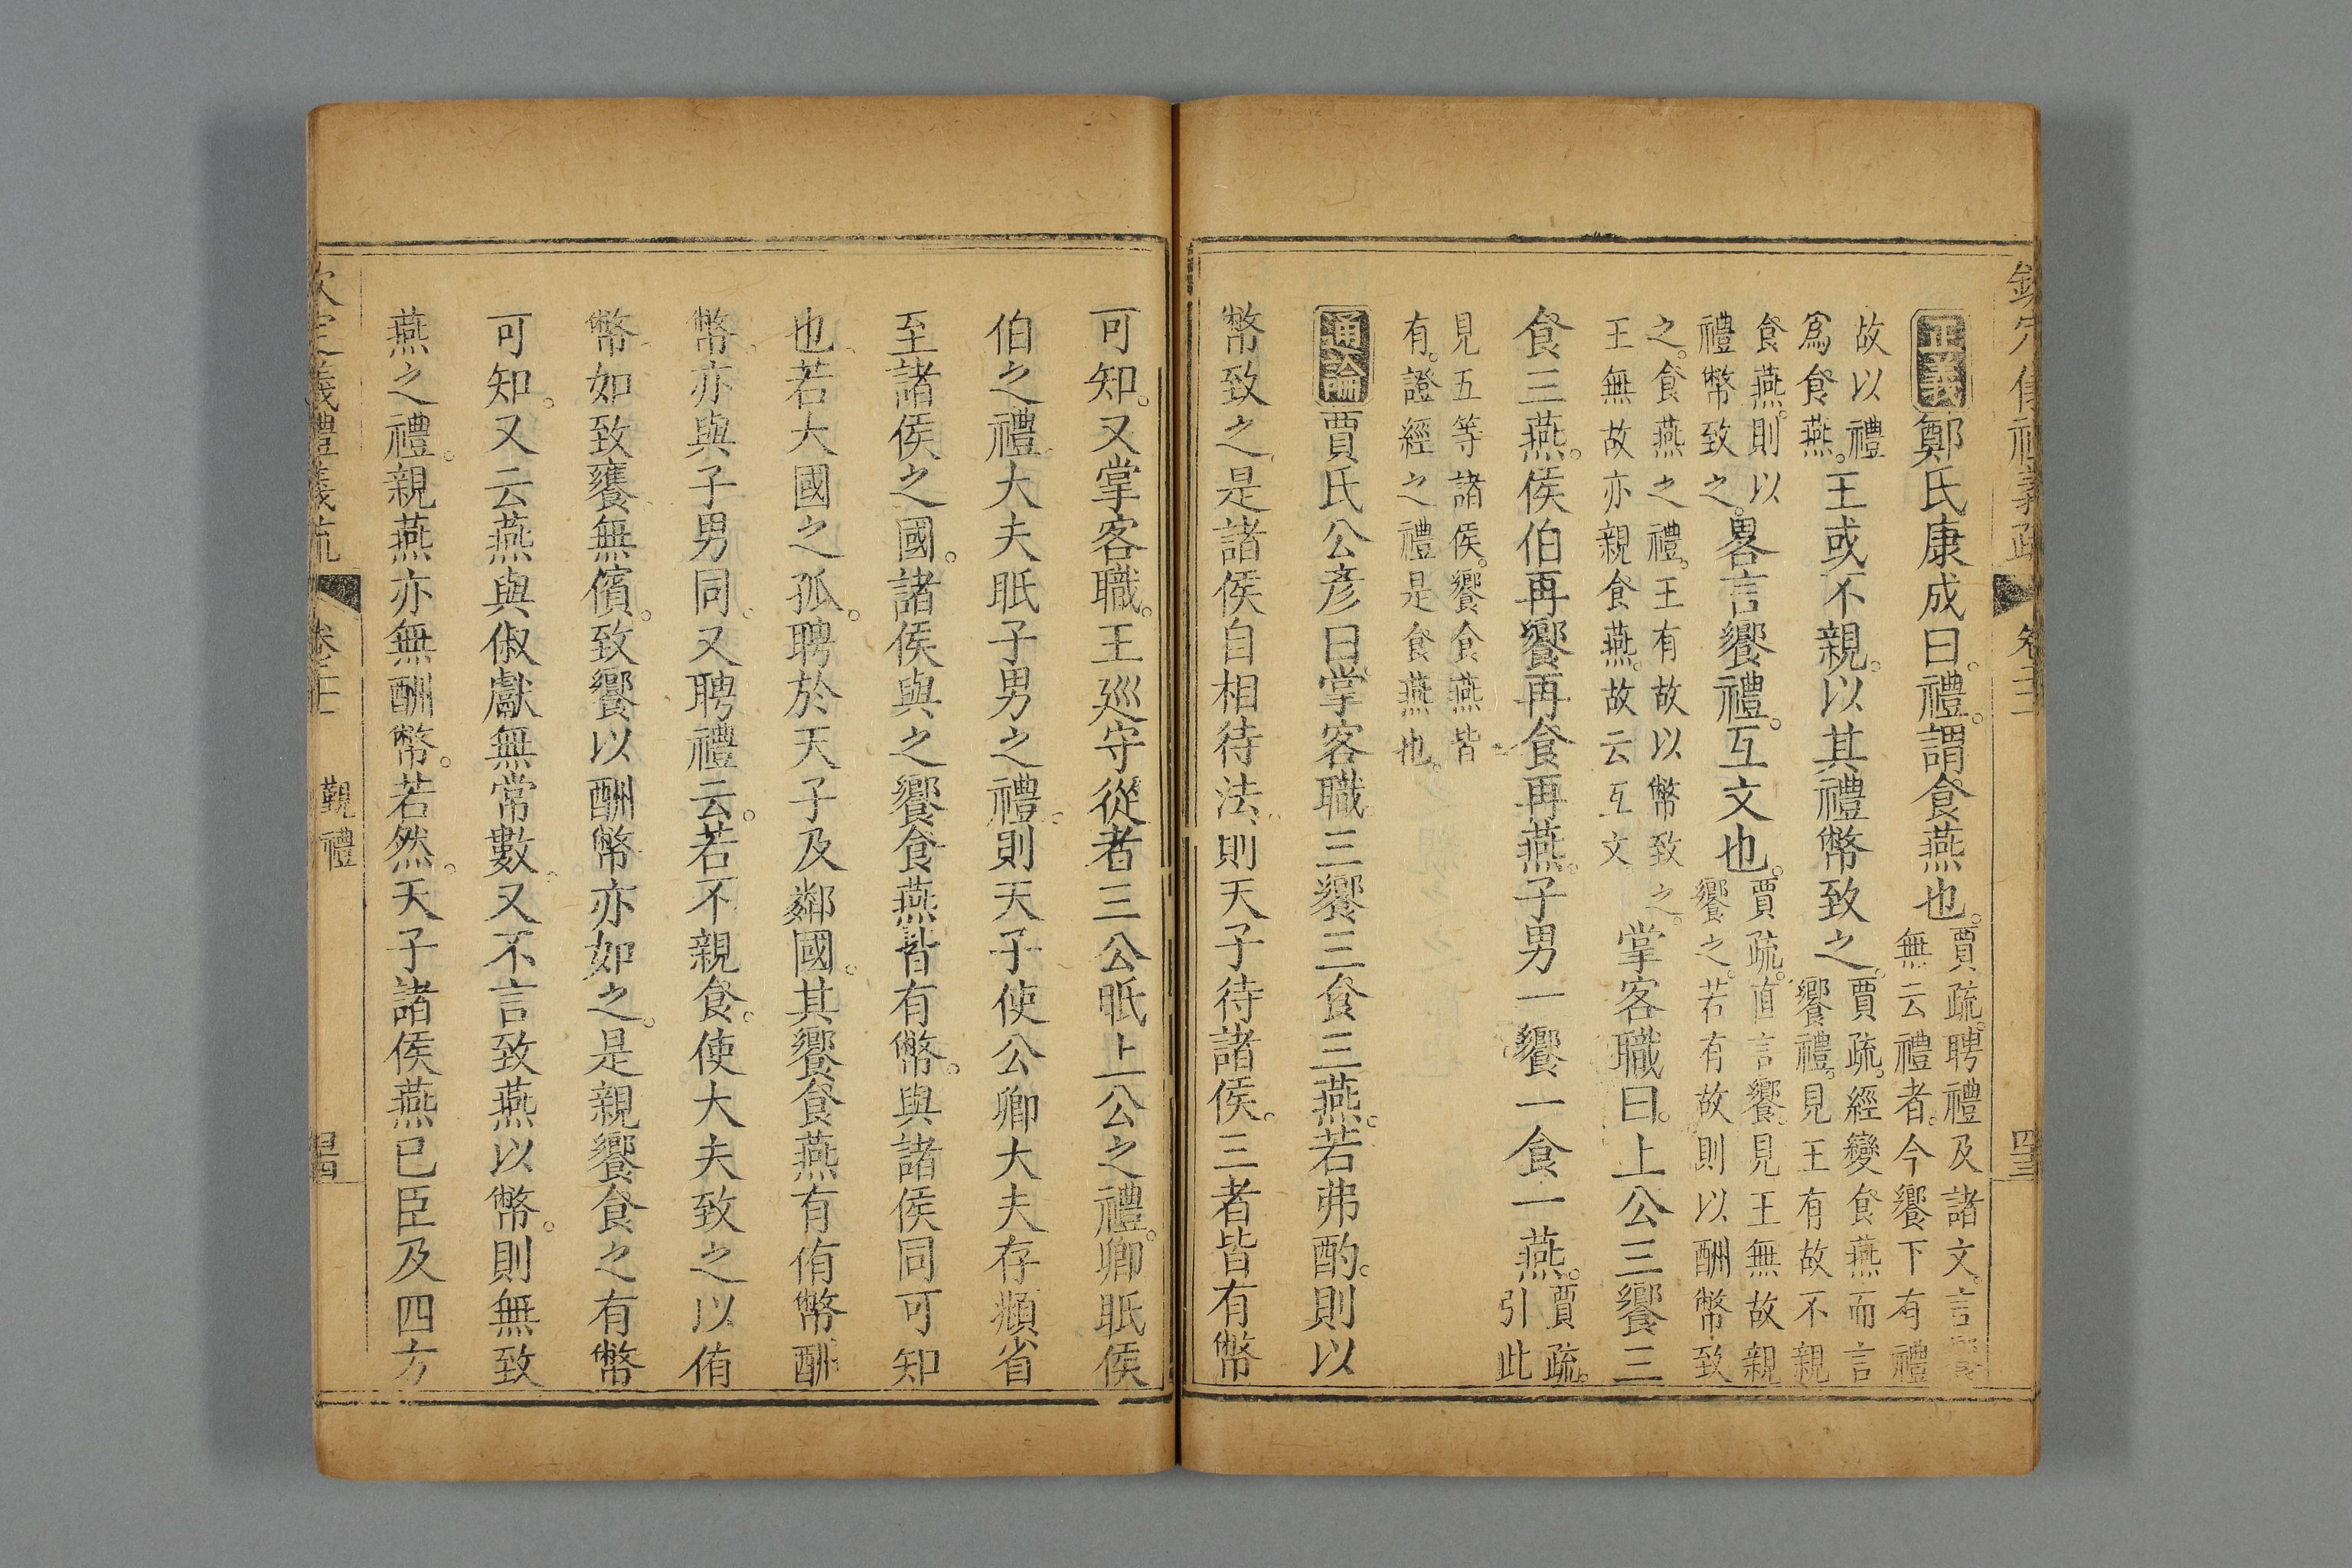 正義鄭氏康成曰。禮。謂食燕也。賈疏。聘禮及諸文。言饗無云禮者。今饗下有禮
故以禮為食燕。王或不親。以其禮幣致之。賈疏。經變食燕而言饗禮。見王有故不親
食燕。則以禮幣致之。畧言饗禮。互文也。賈疏。直言饗。見王無故親饗之。若有故則以酬幣致
之。食燕之禮。王有故以幣致之。王無故亦親食燕。故云互文 掌客職曰。上公三饗三
食三燕。侯伯再饗再食再燕。子男一饗一食一燕。賈疏。引此
見五等諸侯。饗食燕皆有。證經之禮是食燕也。
通論賈氏公彥曰掌客職三饗三食三燕。若弗酌。則以
幣致之是諸侯自相待法則天子待諸侯。三者皆有幣
可知。又掌客職。王巡守從者三公眡上公之禮。卿眡侯
伯之禮。大夫眡子男之禮。則天子使公卿大夫存頫省
至諸侯之國。諸侯與之饗食燕皆有幣。與諸侯同可知
也若大國之孤。聘於天子及鄰國。其饗食燕有侑幣酬
幣亦與子男同。又聘禮云。若不親食。使大夫致之以侑
幣如致饔無儐。致饗以酬幣亦如之。是親饗食之有幣
可知。又云燕與俶獻無常數。又不言致燕以幣。則無致
燕之禮。親燕亦無酬幣。若然。天子諸侯燕已臣及四方
欽定儀禮義疏 卷二十 覲禮